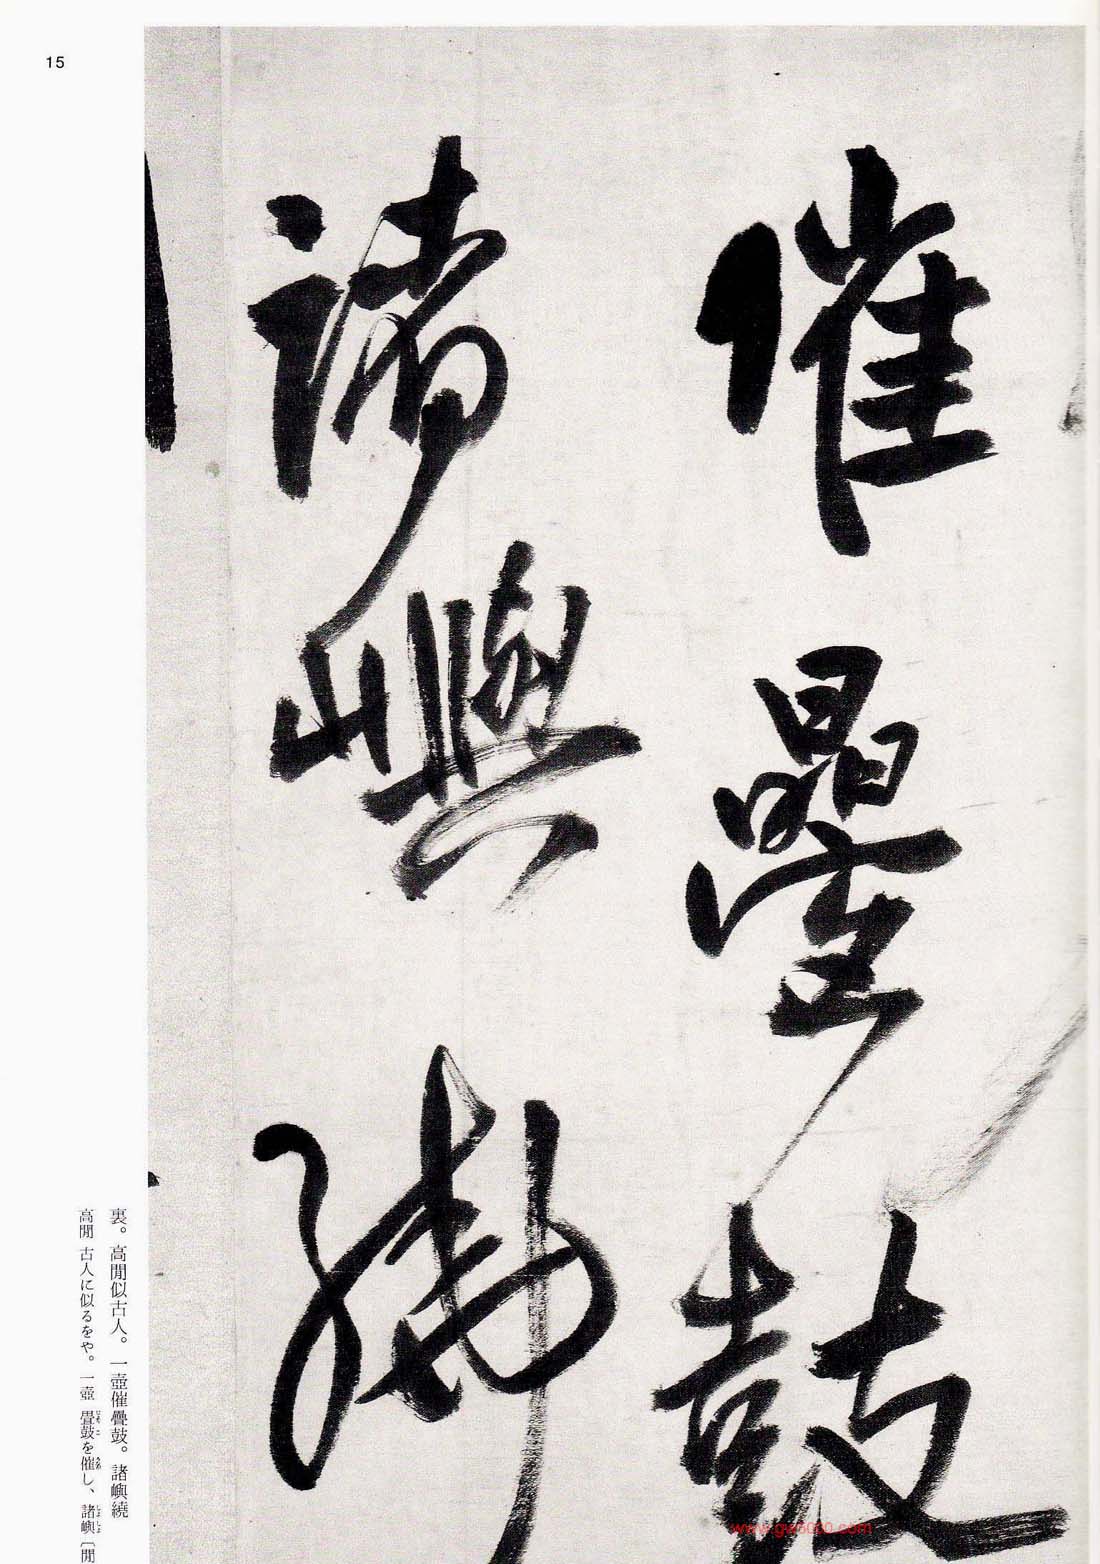 15
催疊鼓
諸嶼繞
裏。高閒似古人。一壺催疊鼓。諸嶼繞
高閒 古人に似るをや。一壺 畳鼓を催し、諸嶼〔閒
www.gw5000.com